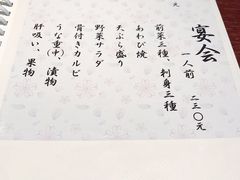 元
宴会
一人前 二三〇元
前菜三種、刺身三種
あわび焼
天ぷら盛り
野菜サラダ
骨付きカルビ
うな重(中)、漬物
肝吸い、果物